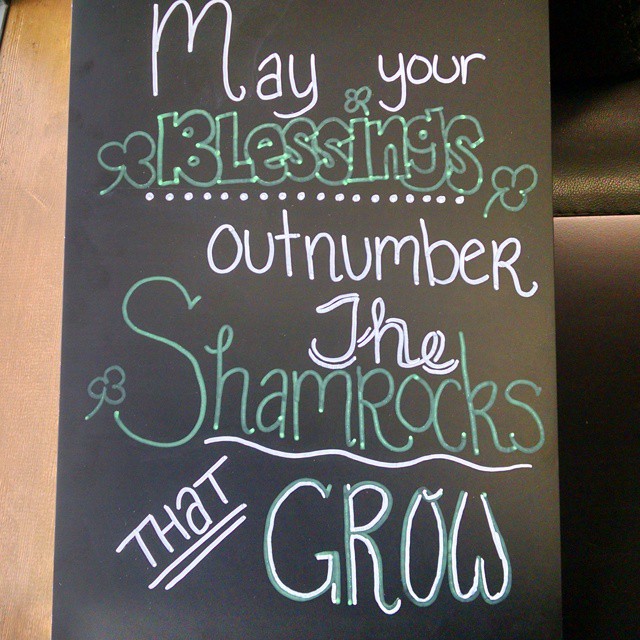 May your
Blessings
outnumber
The
Shamrocks
THaT GROW